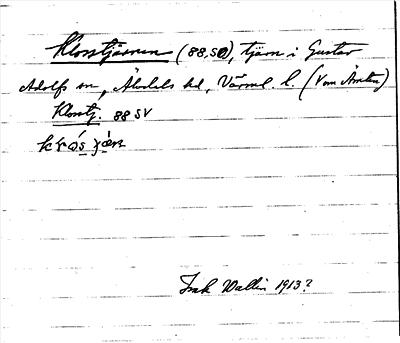 Klosstjärnen (88,SV), tjärn i Gustav
Adolfs sn, Älvdals hd, Värml. l. (Vom Åmten)
Klosstj. 88 SV
Wallin 1913?